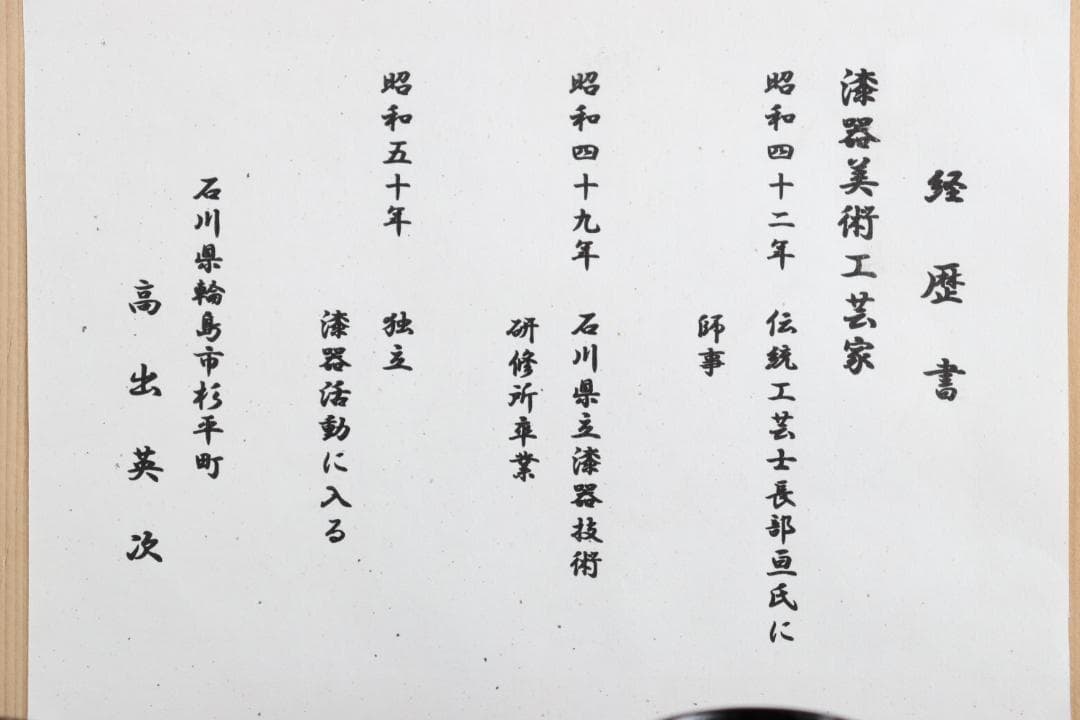 経歴書
漆器美術工芸家
昭和四十二年 伝統工芸士長部亘氏に
師事
昭和四十九年 石川県立漆器技術
研修所卒業
昭和五十年 独立
漆器活動に入る
石川県輪島市杉平町
高出英次